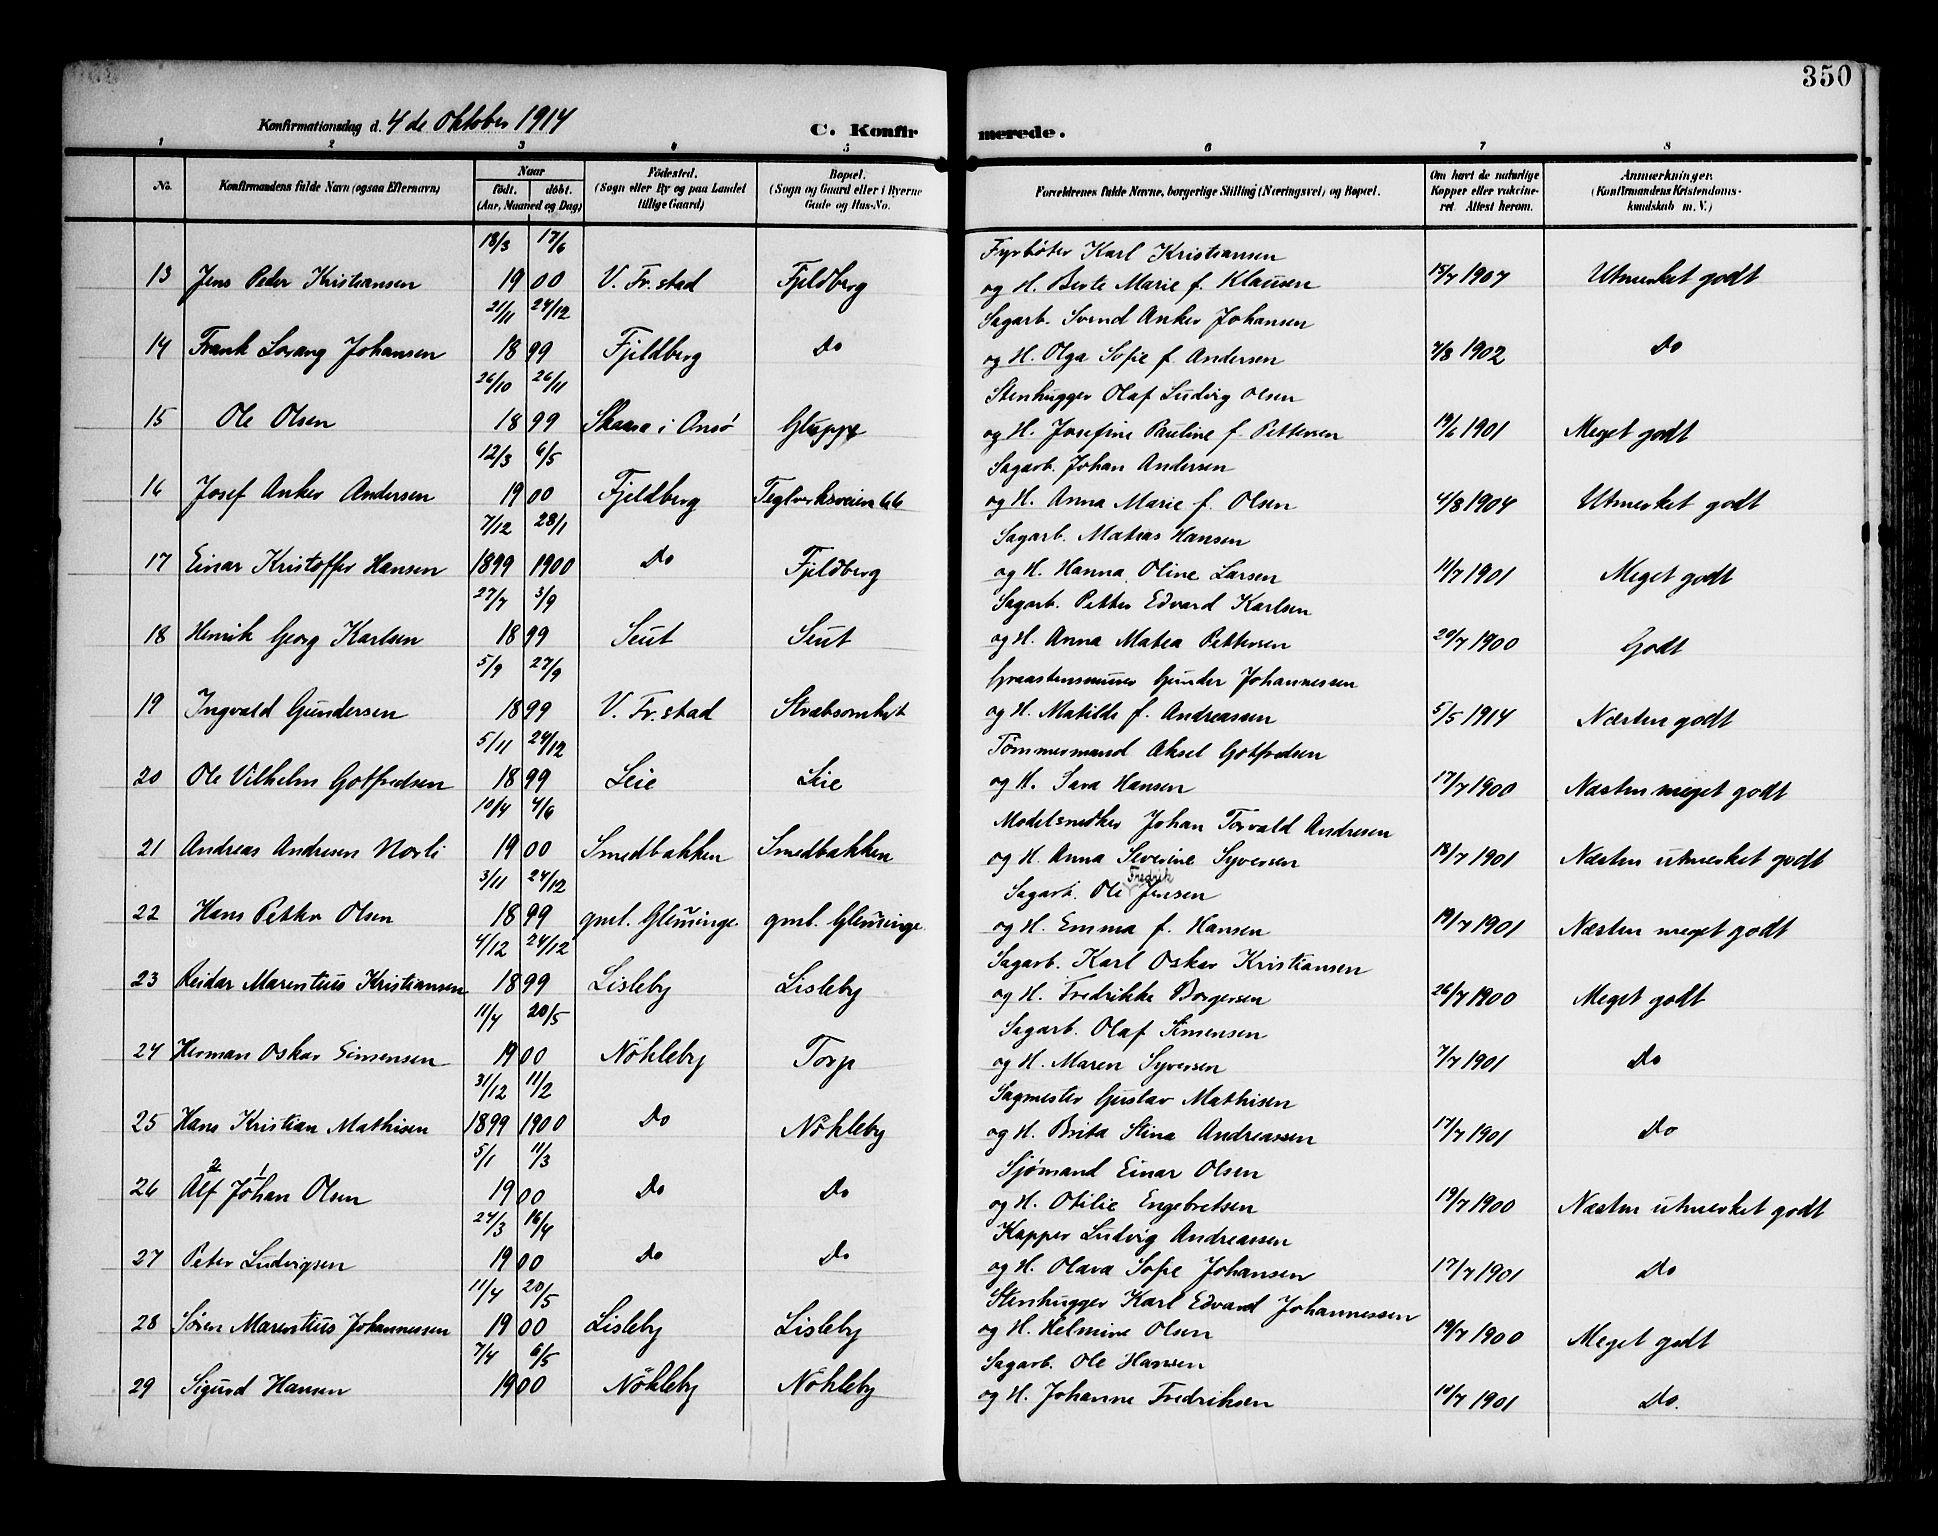 350
Konfirmationsdag d. 4 de Oktober 1914
C. Konfirmerede.
1 2 3 4 5 6 7 8
No. | Konfirmandens fulde Navn (ogsaa Efternavn) | Naar født. døbt. (Aar, Maaned og Dag) | Fødested. (Sogn eller By og paa Landet tillige Gaard) | Bopæl. (Sogn og Gaard eller i Byerne Gade og Hus-No. | Forældrenes fulde Navne, borgerlige Stilling (Næringsvei) og Bopæl. | Om havt de naturlige Kopper eller vakcineret Attest herom. | Anmerkninger. (Konfirmandens Kristendomskundskab m. V.)
18/3 17/6 Fyrbøter Karl Kristiansen
13 Jens Peder Kristiansen 1900 V. Fr.stad Fjeldberg og H. Berte Marie f. Klausen 15/7 1907 Utmerket godt
21/11 24/12 Sagarb. Svend Anker Johansen
14 Frank Lorang Johansen 1899 Fjeldberg Do og H. Olga Sofie f. Andersen 7/8 1902 Do
26/10 26/11 Stenhugger Olaf Ludvig Olsen
15 Ole Olsen 1899 Skaara i Onsø Gluppe og H. Josefine Pauline f. Pettersen 19/6 1901 Meget godt
12/3 6/5 Sagarb. Johan Andersen
16 Josef Anker Andersen 1900 Fjeldberg Teglverksveien 66 og H. Anna Marie f. Olsen 4/8 1904 Utmerket godt
7/12 28/1 Sagarb. Matias Hansen
17 Einar Kristoffer Hansen 1899 1900 Do Fjeldberg og H. Hanna Oline Larsen 11/7 1901 Meget godt
27/7 3/9 Sagarb. Petter Edvard Karlsen
18 Henrik Georg Karlsen 1899 Seut Seut og H. Anna Matea Pettersen 20/7 1900 Godt
5/9 27/9 Graastensmurer Gunder Johannessen
19 Ingvald Gundersen 1899 V. Fr.stad Stræbsomhet og H. Matilde f. Andreassen 5/5 1914 Næsten godt
5/11 24/12 Tømmermand Aksel Gotfredsen
20 Ole Vilhelm Gotfredsen 1899 Leie Leie og H. Sara Hansen 17/7 1900 Næsten meget godt
10/4 4/6 Modelsnedker Johan Torvald Andresen
21 Andreas Andresen Norli 1900 Smedbakken Smedbakken og H. Anna Severine Syversen 18/7 1901 Næsten utmerket godt
3/11 24/12 Sagarb. Ole Fredrik Jensen
22 Hans Petter Olsen 1899 gml. Glemminge gml. Glemminge. og H. Emma f. Hansen 19/7 1901 Næsten meget godt
4/12 24/12 Sagarb. Karl Oskar Kristiansen
23 Reidar Marentius Kristiansen 1899 Lisleby Lisleby og H. Fredrikke Borgersen 26/7 1900 Meget godt
11/4 20/5 Sagarb. Olaf Simensen
24 Herman Oskar Simensen 1900 Nøkleby Torp og H. Maren Syversen 7/7 1901 Do
31/12 11/2 Sagmester Gustav Mathisen
25 Hans Kristian Mathisen 1899 1900 Do Nøkleby og H. Brita Stina Andreassen 17/7 1901 Do
5/1 11/3 Sjømand Einar Olsen
26 Alf Johan Olsen 1900 Do Do og H. Otilie Engebretsen 19/7 1900 Næsten utmerket godt
24/3 16/4 Kapper Ludvig Andreassen
27 Peter Ludvigsen 1900 Do Do og H. Olava Sofie Johansen 17/7 1901 Do
11/4 20/5 Stenhugger Karl Edvard Johannessen
28 Søren Marentius Johannessen 1900 Lisleby Lisleby og H. Helmine Olsen 19/7 1900 Meget godt
7/4 6/5 Sagarb. Ole Hansen
29 Sigurd Hansen 1900 Nøkleby Nøkleby og H. Johanne Fredriksen 10/7 1901 Do.